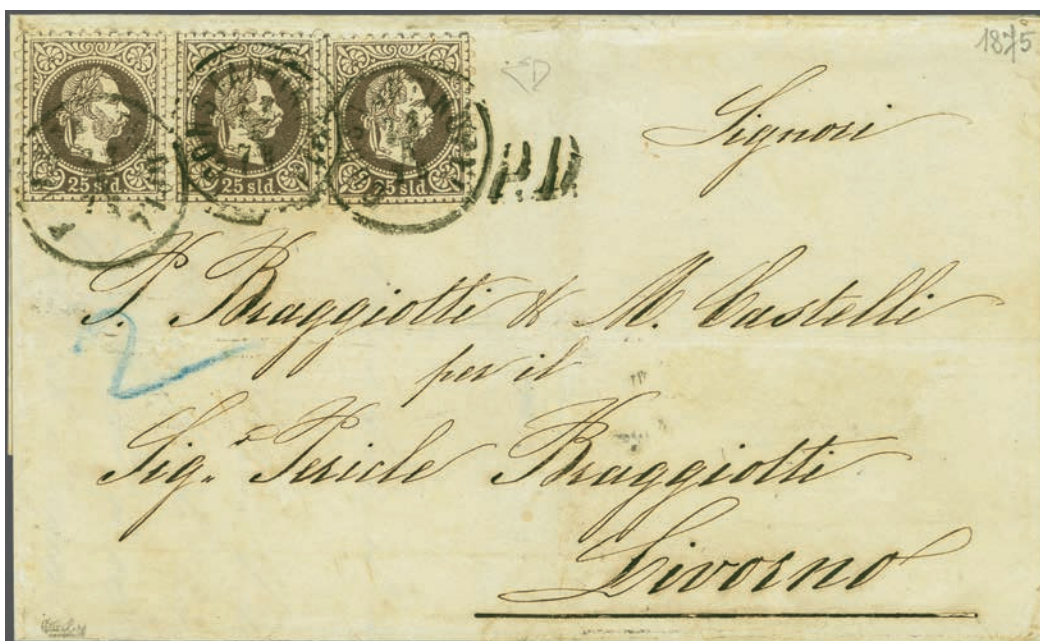 1875
25 sld 25 sld 25 sld
P.D.
Signori
P. Braggiotti & M. Castelli
per il
2
Sig.r Pericle Braggiotti
Livorno